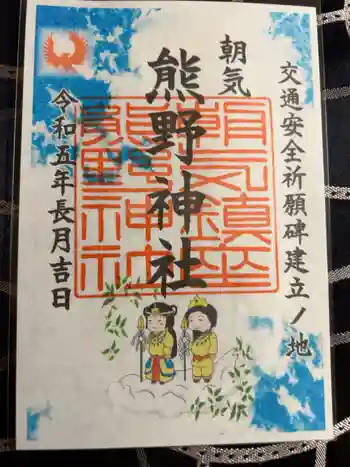 交通安全祈願碑建立ノ地
朝気
熊野神社
朝気鎮座
熊野神社
令和五年長月吉日